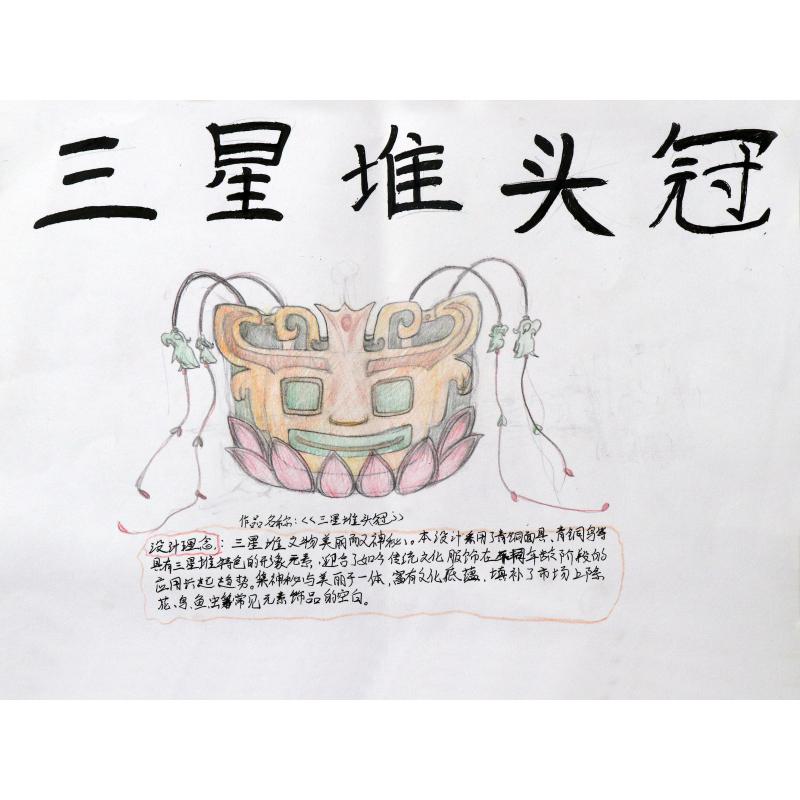 三星堆头冠
作品名称:《三星堆头冠》
设计理念:三星堆文物美丽而又神秘。本设计采用了青铜面具、青铜鸟等
具有三星堆特色的形象元素,迎合了如今传统文化服饰在年龄阶段的
应用兴起趋势。集神秘与美丽于一体,富有文化底蕴,填补了市场上除
花、鸟、鱼、虫等常见元素饰品的空白。